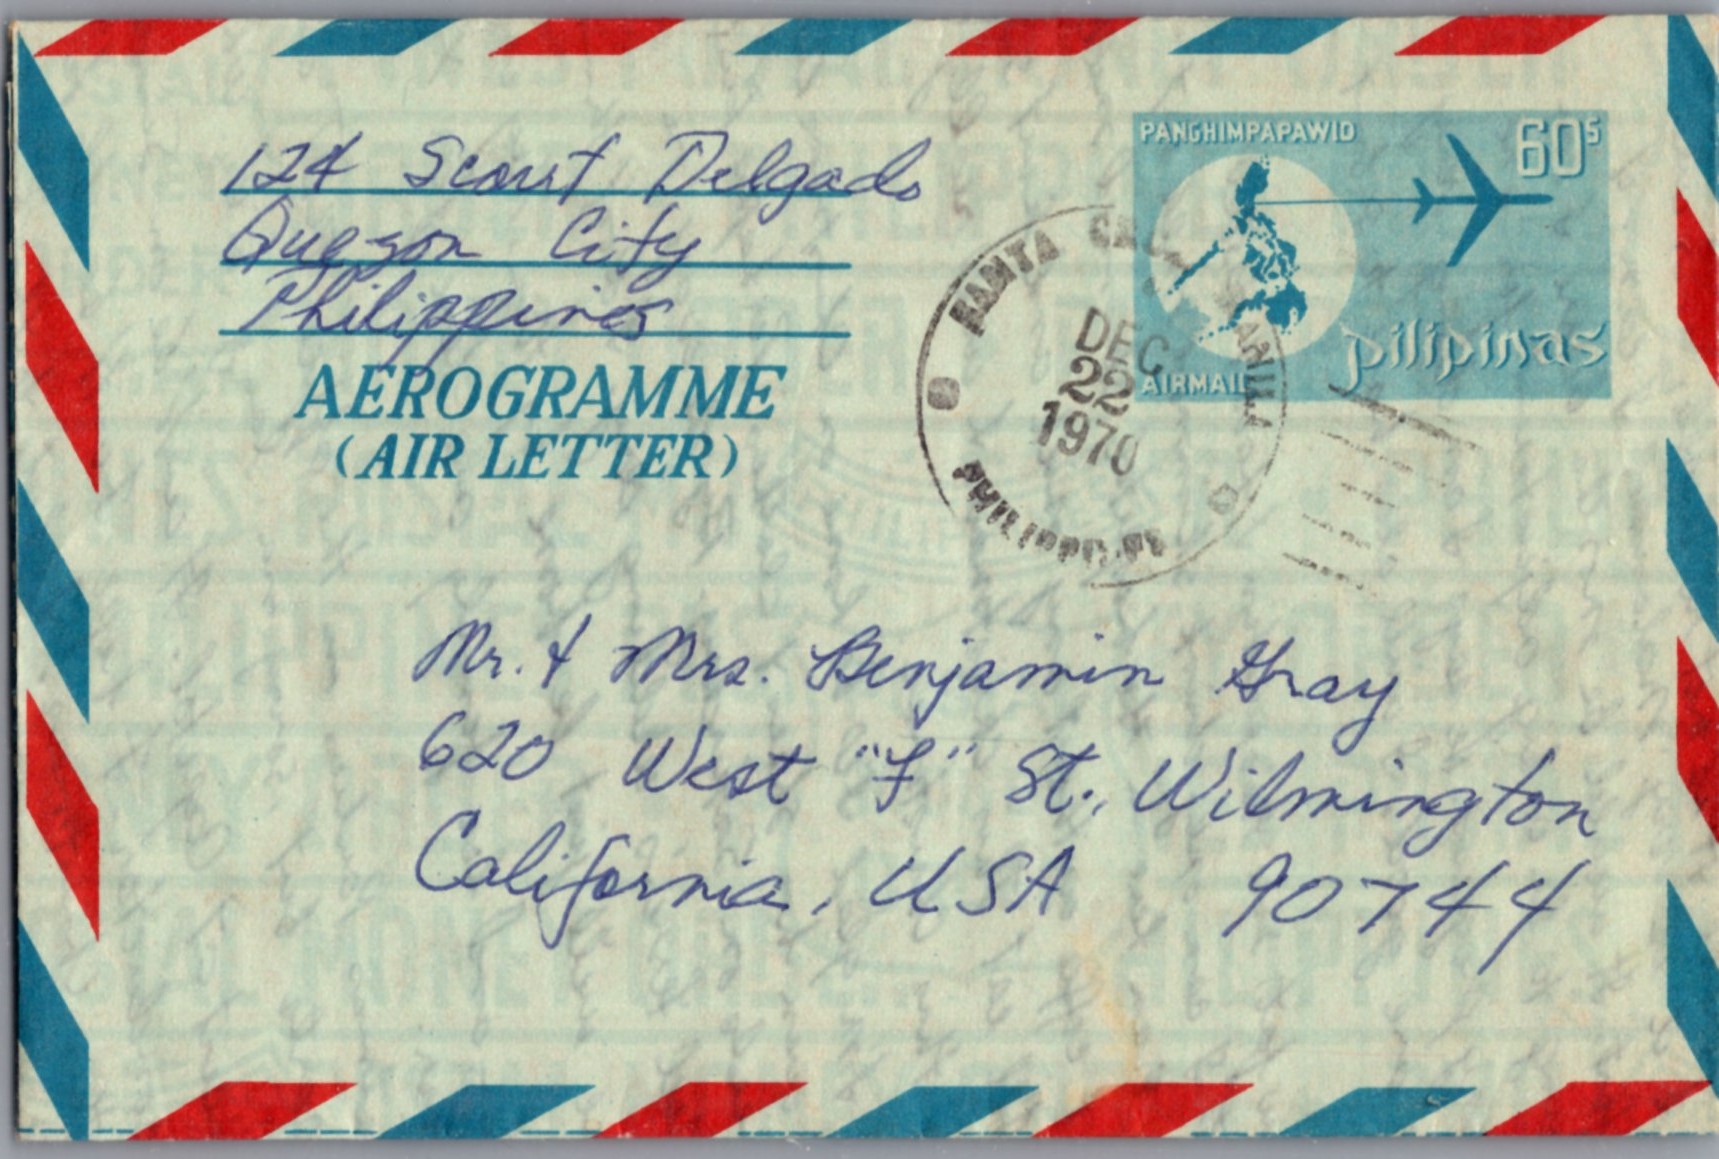 124 Scout Delgado
Quezon City
Philippines
AEROGRAMME
(AIR LETTER)
PANGHIMPAPAWID
60s
pilipinas
AIRMAIL
SANTA
DEC
22
1970
Mr. & Mrs. Benjamin Gray
620 West "F" St., Wilmington
California, USA 90744